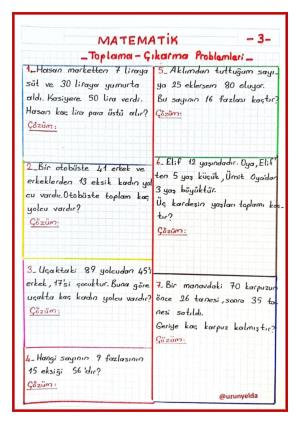 MATEMATİK -3-
_Toplama-Çıkarma Problemleri_
1_ Hasan marketten 7 liraya
süt ve 30 liraya yumurta
aldı. Kasiyere 50 lira verdi.
Hasan kaç lira para üstü alır?
Çözüm:
2_ Bir otobüste 41 erkek ve
erkeklerden 13 eksik kadın yol
cu vardır. Otobüste toplam kaç
yolcu vardır?
Çözüm:
3_ Uçaktaki 89 yolcudan 45'i
erkek, 17'si çocuktur. Buna göre
uçakta kaç kadın yolcu vardır?
Çözüm:
4_ Hangi sayının 9 fazlasının
15 eksiği 56'dır?
Çözüm:
5_ Aklımdan tuttuğum sayı
ya 25 eklersem 80 oluyor.
Bu sayının 16 fazlası kaçtır?
Çözüm:
6_ Elif 12 yaşındadır. Oya, Elif'
ten 5 yaş küçük, Ümit Oya'dan
3 yaş büyüktür.
Üç kardeşin yaşları toplamı kaç
tır?
Çözüm:
7_ Bir manavdaki 70 karpuzun
önce 26 tanesi, sonra 35 ta
nesi satıldı.
Geriye kaç karpuz kalmıştır?
Çözüm:
@uzunyelda